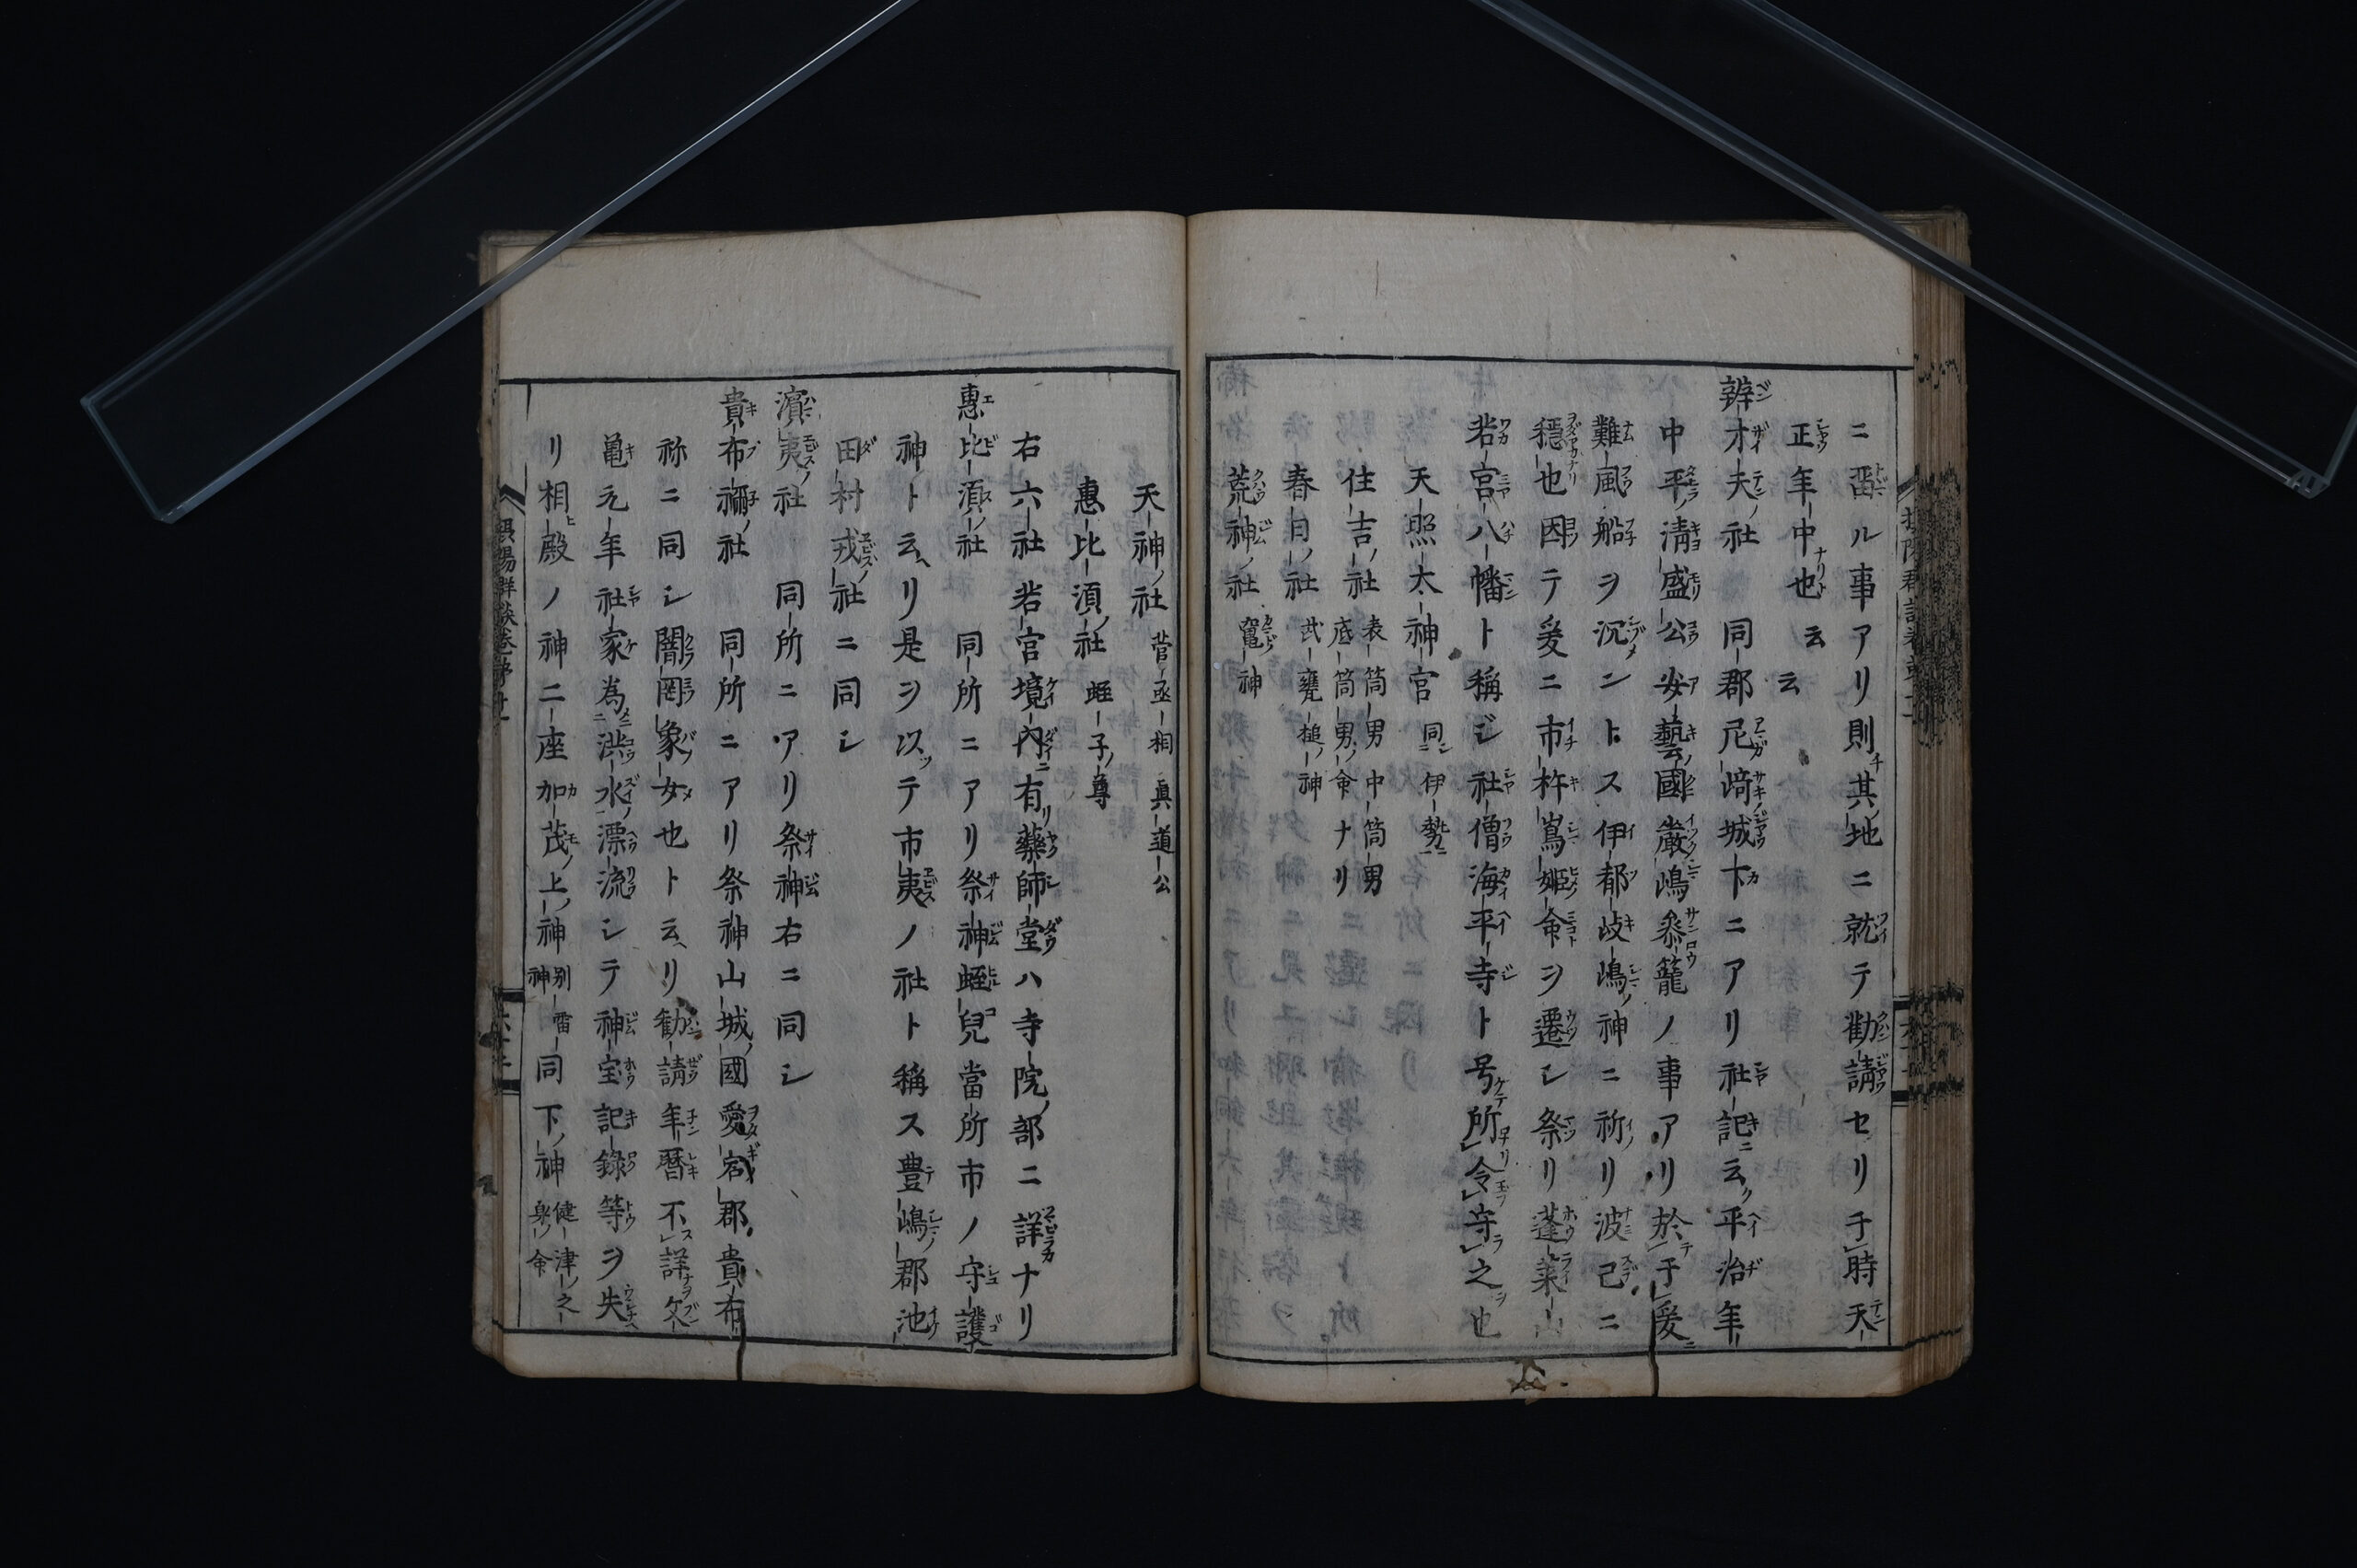 ニ畱ル事アリ則其ノ地ニ就テ勧請セリ于時天
正年中也云云
辨才天ノ社 同郡尼﨑城下ニアリ社記ニ云ク平治年
中平清盛公安藝ノ國嚴嶋參籠ノ事アリ於于爰ニ
難風船ヲ沉メントス伊都岐嶋ノ神ニ祈リ波已ニ
穩也因テ爰ニ市杵嶌姫ノ命ヲ遷シ祭リ蓬萊山
若宮八幡ト稱ジ社僧海平寺ト号ケテ所令守之也
天照太神宮 同シ伊勢ニ
住吉ノ社 表筒男 中筒男
底筒男ノ命ナリ
春日ノ社 武甕槌ノ神
荒神ノ社 竃神
天神ノ社 菅丞相 眞道公
惠比須ノ社 蛭子ノ尊
右六社若宮境内ニ有リ藥師堂ハ寺院ノ部ニ詳ナリ
惠比須ノ社 同所ニアリ祭神蛭兒當所市ノ守護
神ト云ヘリ是ヲ以ッテ市夷ノ社ト稱ス豊嶋ノ郡池
田村戎ノ社ニ同シ
濵夷ノ社 同所ニアリ祭神右ニ同シ
貴布禰ノ社 同所ニアリ祭神山城ノ國愛宕郡貴布
祢ニ同シ闇罔象女也ト云ヘリ勧請年暦不詳ナラ文
亀元年社家為ニ洪水ノ漂流シテ神宝記録等ヲ失
リ相殿ノ神二座加茂ノ上ノ神 別雷神 同下ノ神 健津之身ノ命
攝陽群談巻第十一